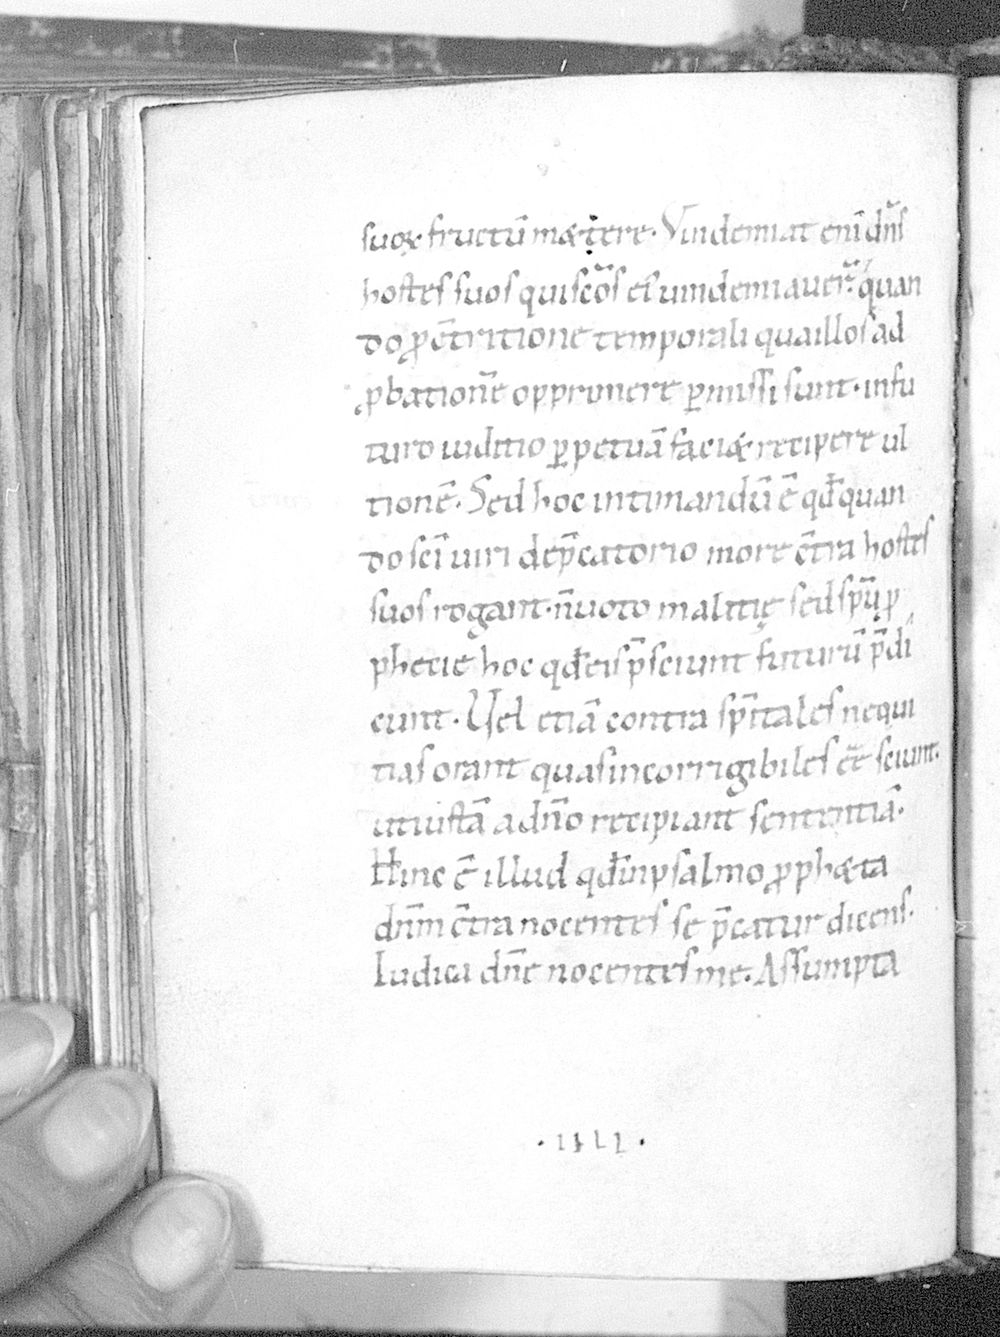 suoꝝ fructū mætere. Vindemiat enī dn̄s
hostes suos qui sc̄os ei uindemiauer̄. quan
do ꝓ c̄tritione temporali qua illos ad
ꝓbationē opprimere ꝑmissi sunt. in fu
turo iuditio ꝑpetuā faciæ recipere ul
tionē. Sed hoc intimandū ē qđ quan
do sc̄i uiri dep̄catorio more c̄tra hostes
suos rogant. n̄ uoto malitię sed sp̄ū ꝓ
phetie hoc qđ eis p̄sciunt futurū p̄di
cunt. Vel etiā contra sp̄itales nequi
tias orant quas incorrigibiles cē sciunt.
ut iustā a dn̄o recipiant sententiā.
Hinc ē illud qđ in psalmo ꝓphæta
dn̄m c̄tra nocentes se p̄catur dicens.
Iudica dn̄e nocentes me. Assumpta